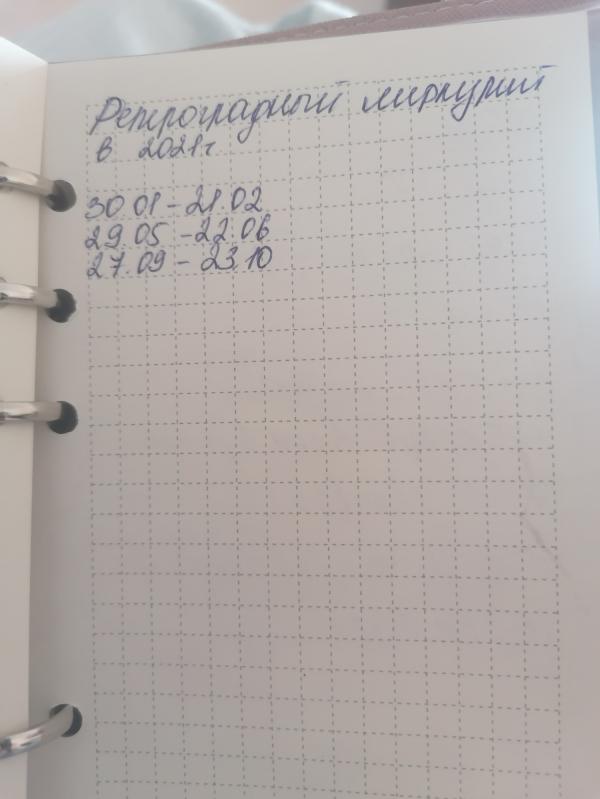 Ретроградный меркурий
в 2021г
30 01 - 21.02
29.05 - 22.06
27.09 - 23.10